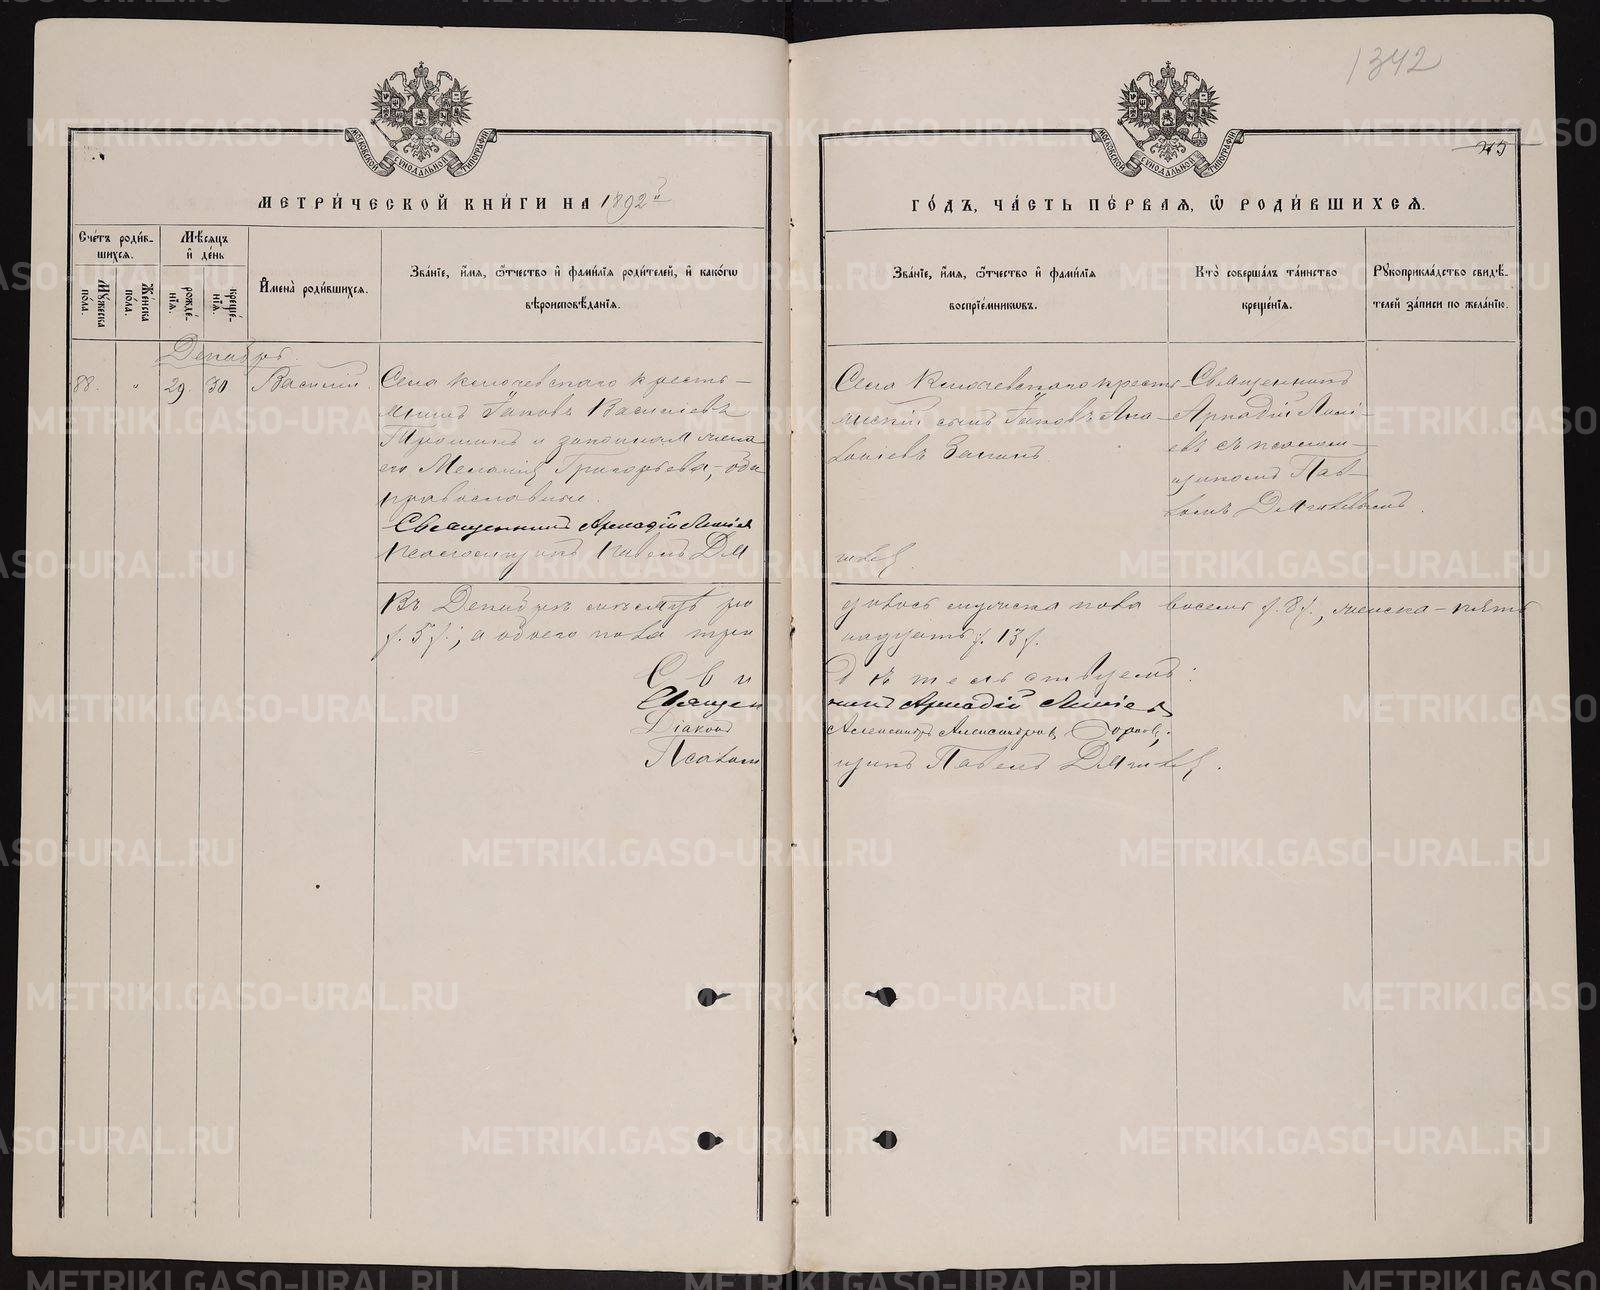 1342
МОСКОВСКОЙ СѴНОДАЛЬНОЙ ТИПОГРАФІИ
МОСКОВСКОЙ СѴНОДАЛЬНОЙ ТИПОГРАФІИ
МЕТРИ́ЧЕСКОЙ КНИ́ГИ НА 1892й
ГО́ДЪ, ЧА́СТЬ ПЕ́РВАѦ, Ѡ҆ РОДИ́ВШИХСѦ.
Сче́тъ роди́в-
шихсѧ.
Мꙋ́жеска по́ла.
Же́нска по́ла.
Мѣ́сѧцъ
и҆ де́нь
рожде́-
нїѧ.
креще́-
нїѧ.
И҆мена̀ роди́вшихсѧ.
Зва́нїе, и҆́мѧ, ѻ҆́тчество и҆ фами́лїѧ роди́телей, и҆ како́гѡ
вѣроисповѣ́данїѧ.
Зва́нїе, и҆́мѧ, ѻ҆́тчество и҆ фами́лїѧ
воспрїе́мникѡвъ.
Кто̀ соверша́лъ та́инство
креще́нїѧ.
Рꙋкоприкла́дство свидѣ́-
телей за́писи по жела́нїю.
Декабрь.
88. " 29. 30 Василій.
Села Ключевского кресть-
янинъ Іаковъ Васильевъ
Трошинъ и законная жена
его Меланія Григорьева, оба
православные.
Священникъ Аркадій
Псаломщикъ Павелъ
Села Ключевского кресть-
янскій сынъ Іаковъ
Священникъ
Аркадій
съ псалом-
щикомъ Пав-
ломъ
Въ Декабрѣ мѣсяцѣ ро
дилось мужска пола восемь /.8/., женска - пять
/.5/., а обоего пола три
надцать /.13/.
Сви
дѣтельствуемъ:
Священ
никъ Аркадій
Діаконъ
Александръ Александровъ
Псалом
щикъ Павелъ
METRIKI.GASO-URAL.RU